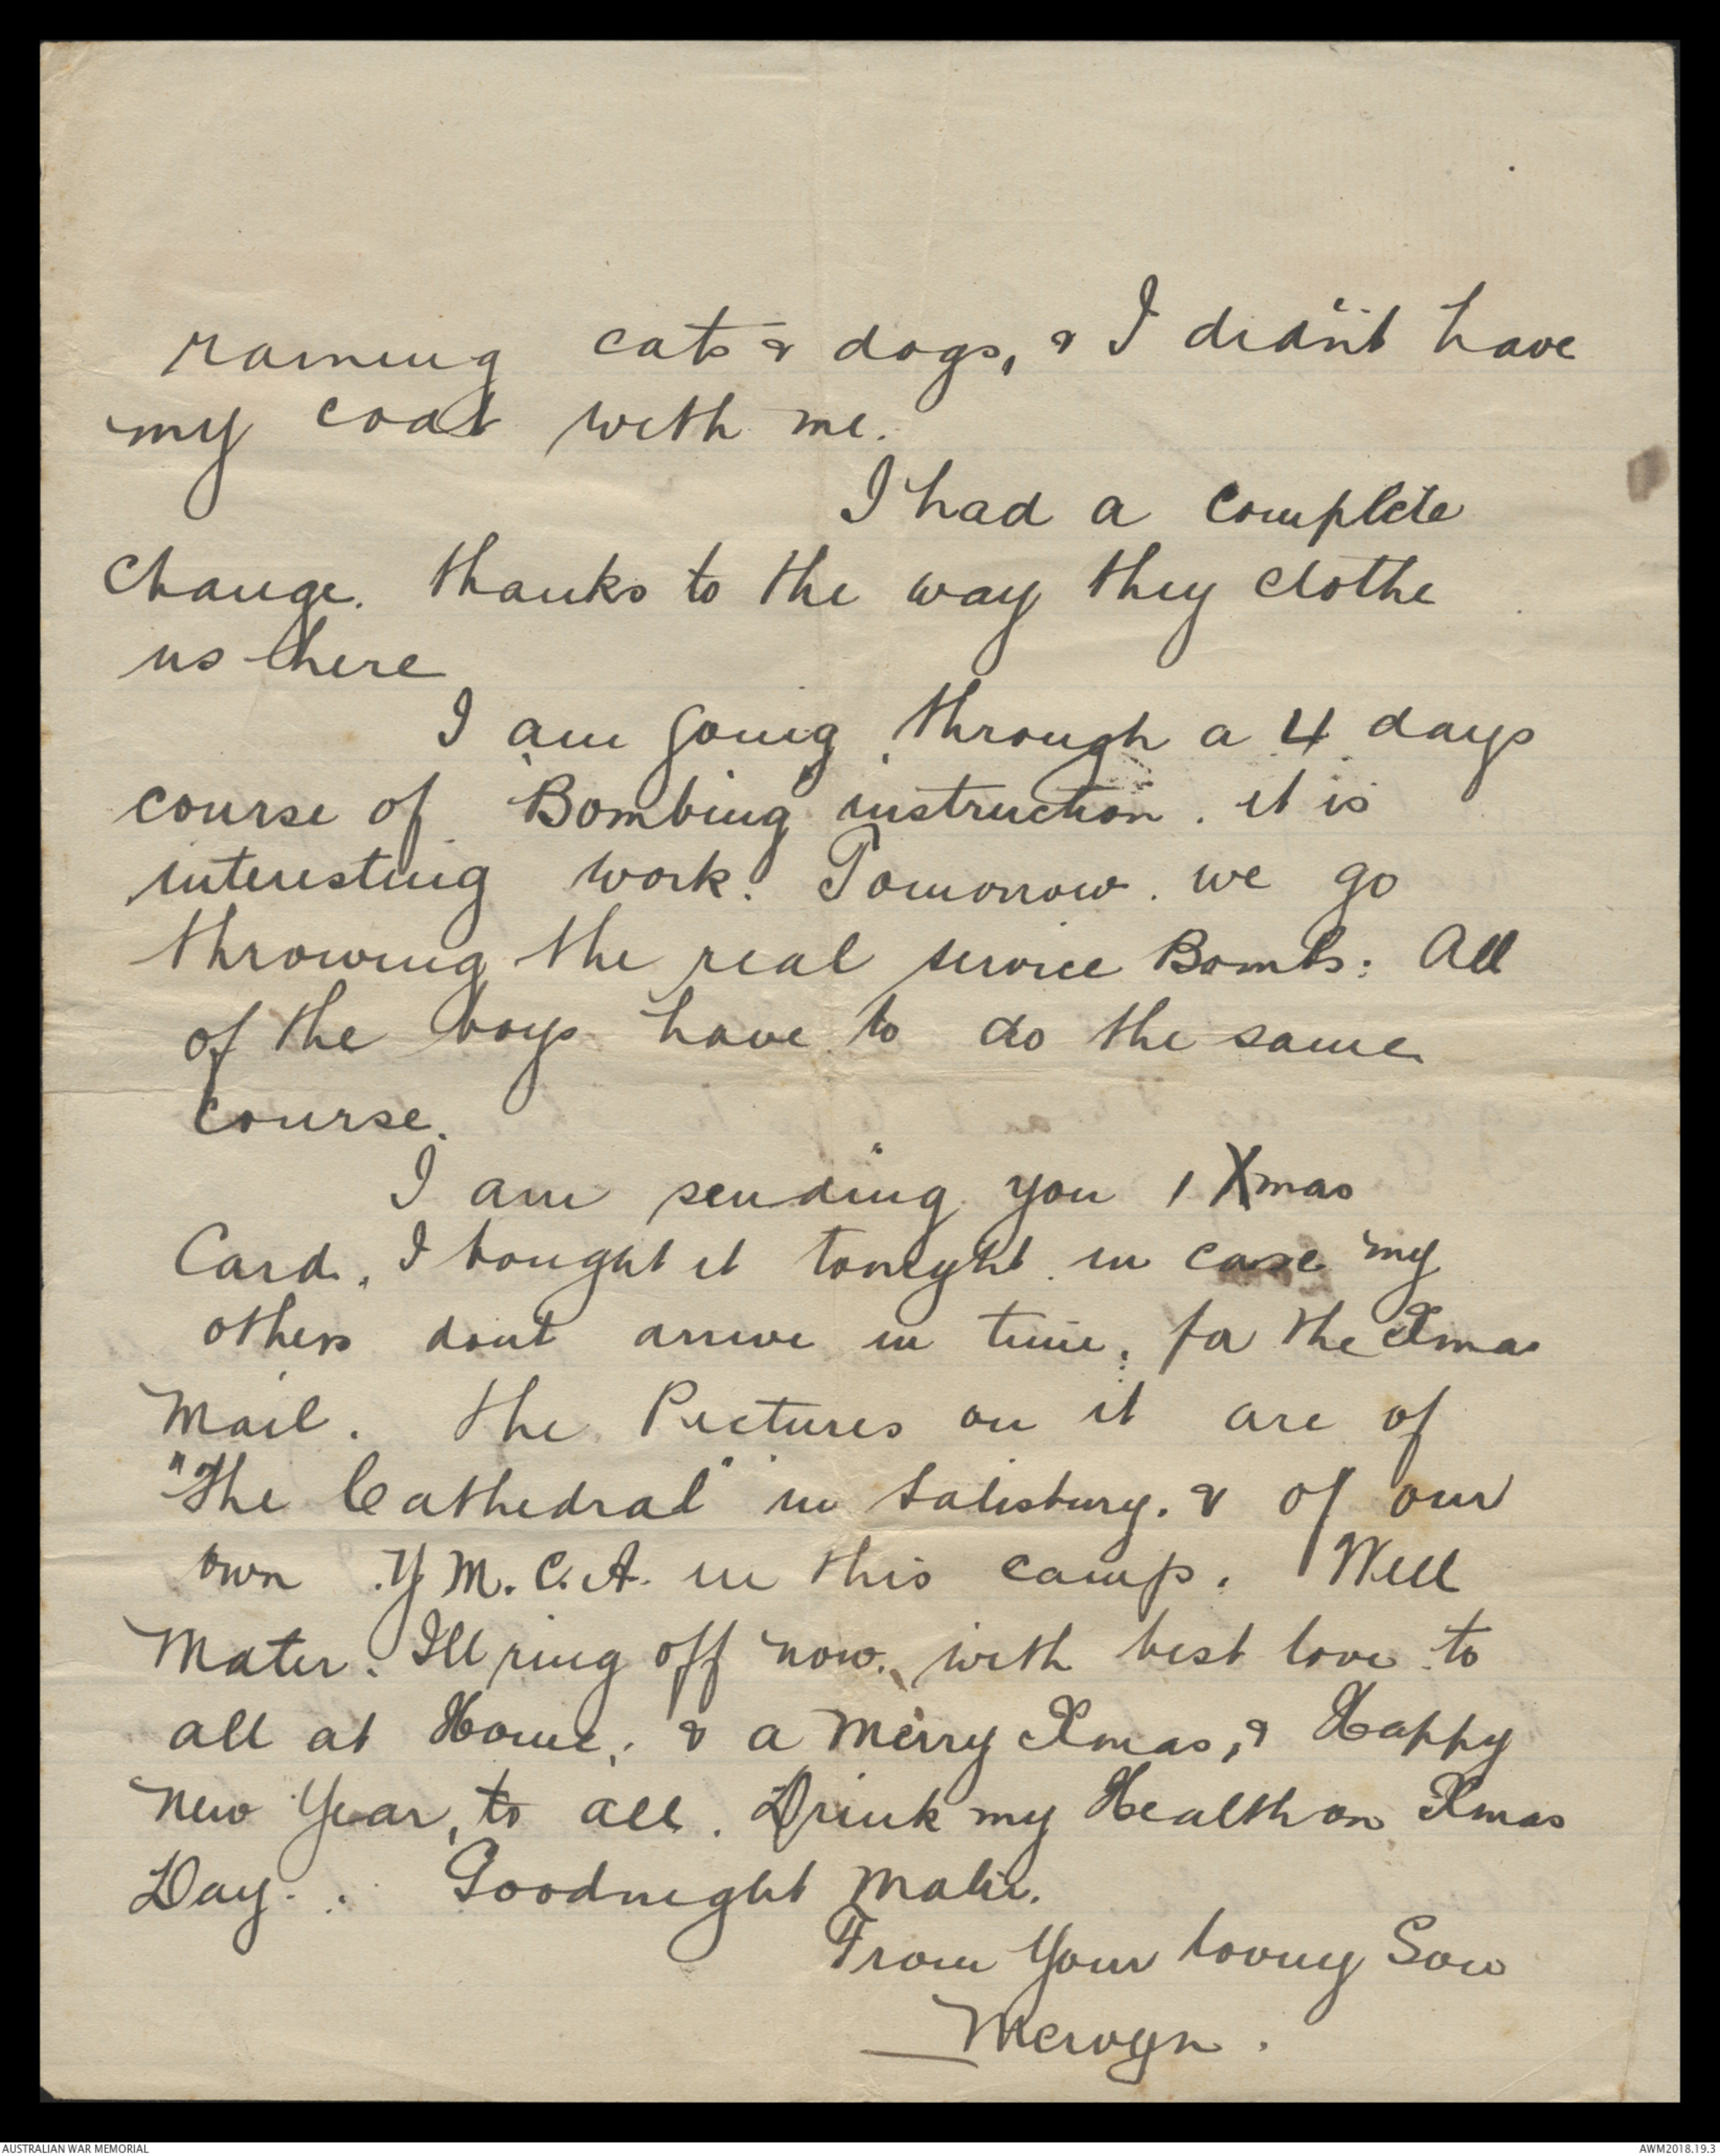 raining cats & dogs, & I didn't have
my coat with me.
I had a complete
change. thanks to the way they clothe
us here
I am going through a 4 days
course of "Bombing" instruction. it is
interesting work. Tomorrow. we go
throwing the real service Bombs. All
of the boys have to do the same
course.
I am sending you 1 Xmas
Card, I bought it tonight in case my
others dont arrive in time, for the Xmas
Mail. The Pictures on it are of
"The Cathedral" in Salisbury. & of our
own Y.M.C.A. in this camp. Well
Mater. Ill ring off now. with best love to
all at Home, & a Merry Xmas, & Happy
New Year, to all. Drink my Health on Xmas
Day. Goodnight Mater.
From Your loving Son
Mervyn.
AUSTRALIAN WAR MEMORIAL
AWM2018.19.3